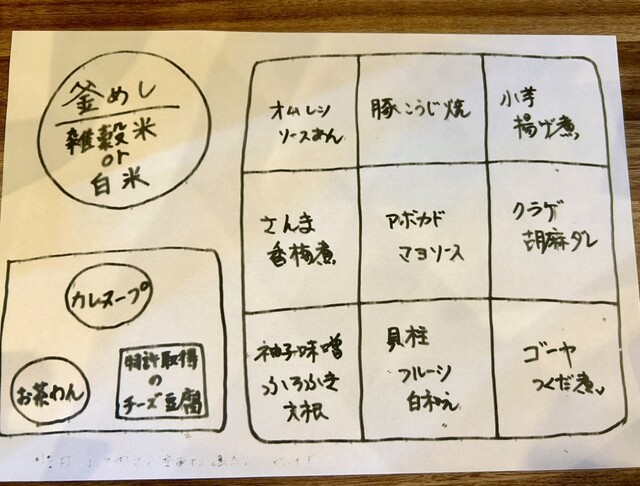 釜めし
雑穀米
or
白米
オムレツ
ソースあん
豚こうじ焼
小芋
揚げ煮
さんま
香梅煮
アボカド
マヨソース
クラゲ
胡麻ダレ
柚子味噌
ふろふき
大根
貝柱
フルーツ
白和え
ゴーヤ
つくだ煮
カレースープ
お茶わん
特許取得
の
チーズ豆腐